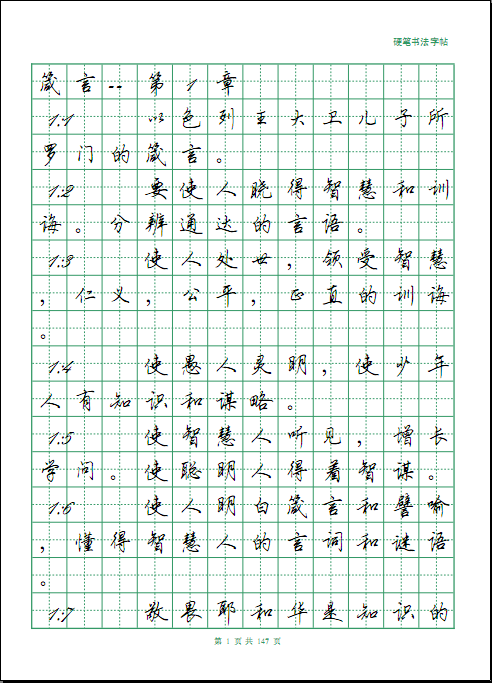 硬笔书法字帖
箴言--第1章
1:1 以色列王大卫儿子所
罗门的箴言。
1:2 要使人晓得智慧和训
诲。分辨通达的言语。
1:3 使人处世,领受智慧
,仁义,公平,正直的训诲
。
1:4 使愚人灵明,使少年
人有知识和谋略。
1:5 使智慧人听见,增长
学问。使聪明人得着智谋。
1:6 使人明白箴言和譬喻
,懂得智慧人的言词和谜语
。
1:7 敬畏耶和华是知识的
第 1 页 共 147 页